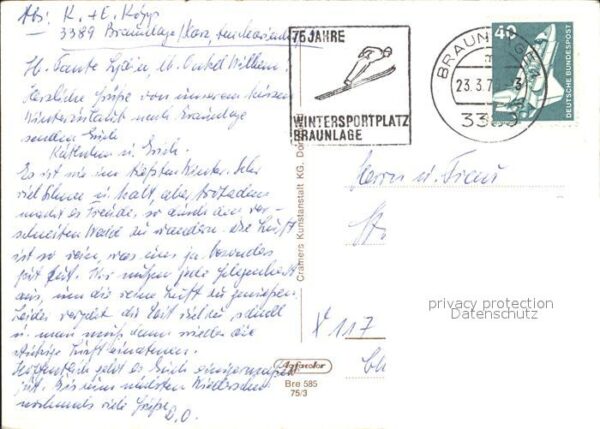 Abs: K. + E. Köpp
3389 Braunlage/Harz,
Lb. Tante Lydia, lb. Onkel Willem,
Herzliche Grüße von unserem kurzen
Winterurlaub nach Braunlage
senden Euch
Käthchen u. Erich.
Es ist wie im tiefsten Winter. Sehr
viel Schnee u. kalt, aber trotzdem
macht es Freude, so durch den ver-
schneiten Wald zu wandern. Die Luft
ist so rein, was uns ja besonders
gut tut. Wir nutzen jede Gelegenheit
aus, um die reine Luft zu genießen.
Leider vergeht die Zeit viel zu schnell
u. man muß dann wieder die
Luft einatmen.
Hoffentlich geht es Euch einigermaßen
gut. Bis zum nächsten Wiedersehen
nochmals viele Grüße
D.O.
75 JAHRE
WINTERSPORTPLATZ
BRAUNLAGE
BRAUNLAGE 1
23.3.7
3389
40
DEUTSCHE BUNDESPOST
Herrn u. Frau
St
X 117
Ch
Cramers Kunstanstalt KG. Dor
Agfacolor
Bre 585
75/3
privacy protection
Datenschutz